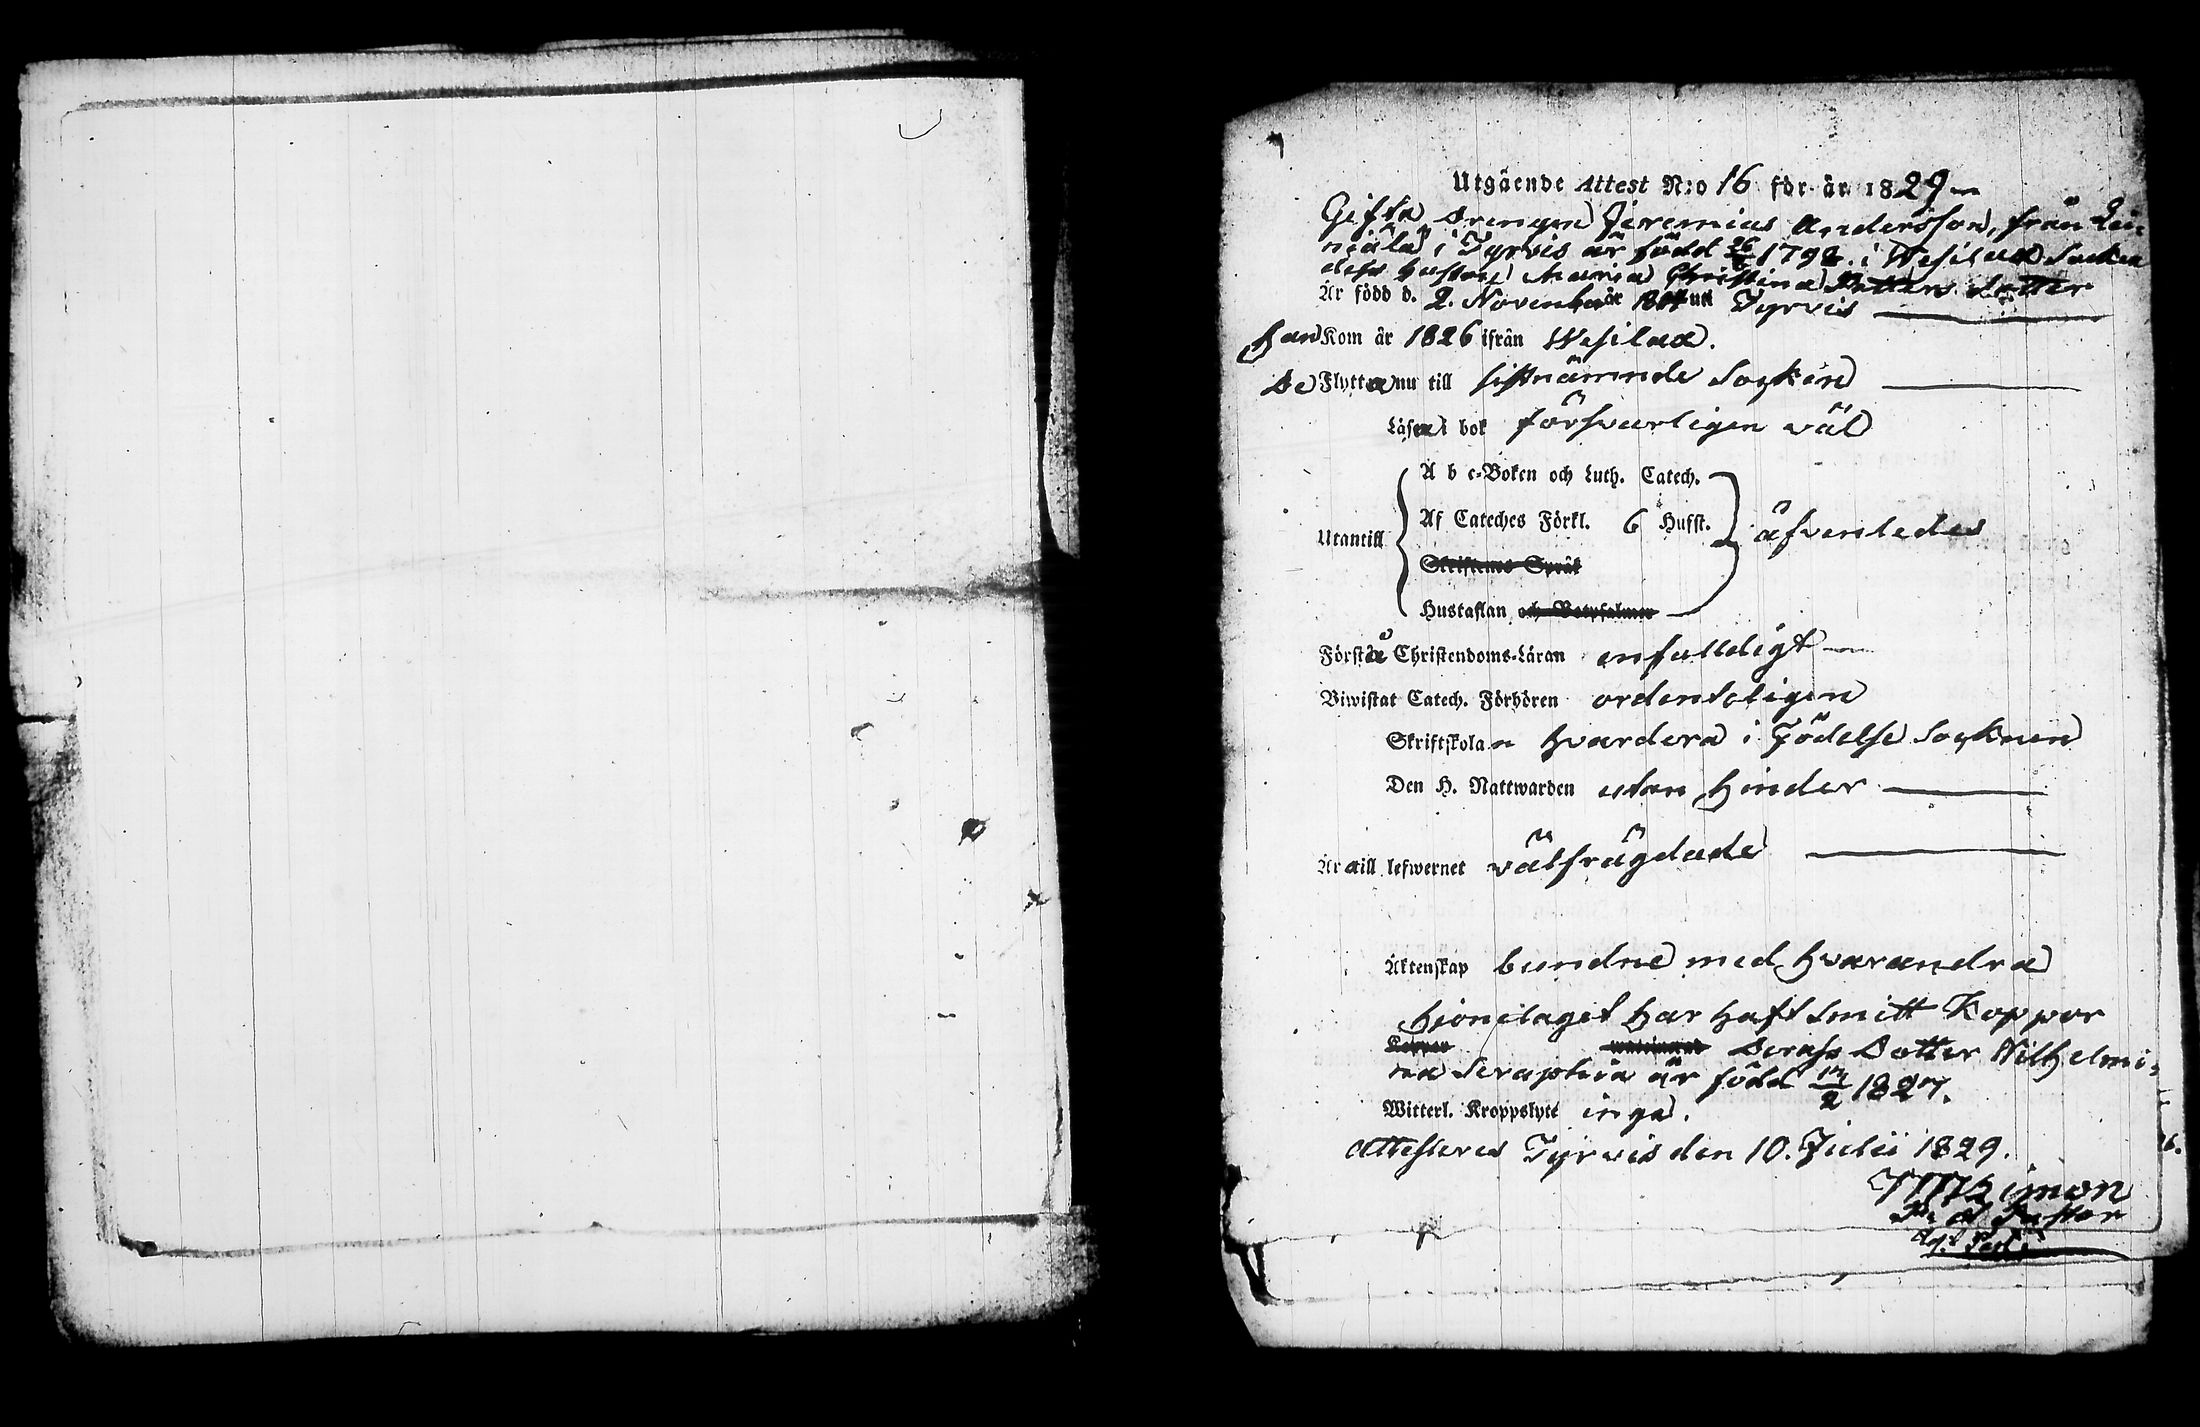 Utgående Attest N:o 16 för år 1829
Gifta drengen Jeremias Andersson, från Lei-
niälä i Tyrvis är född 26/6 1798. i Wesilax Socken
dess hustru Maria Christina Petters dotter
Är född d. 2. November år uti Tyrvis
han Kom år 1826 ifrån Wesilax.
De Flytta nu till sistnämnde Socken
Läsa i bok försvarligen väl
A b c-Boken och Luth. Catech.
Af Cateches Förkl. 6 Hufst.
Utantill äfvenledes
Skriftenes Språk
Hustaflan och Botpsalmer
Förstå Christendoms-Läran enfaldigt
Biwistat Catech. Förhören ordenteligen
Skriftskolan hvardera i Födelse Socknen
Den H. Nattwarden utan hinder
Är a till lefwernet välfrägdade
Äktenskap bundne med hvarandra
hionelaget har haft Smitt Koppor
Koppor vaccinerad Derass Dotter Wilhelmi-
na Seraphia är född 17/2 1827.
Witterl. Kroppslyte inga.
Attesteras Tyrvis den 10. Julii 1829.
Simon
Pastor